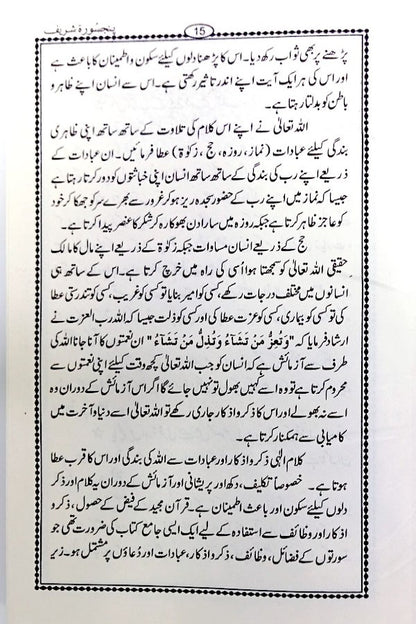 پنجسُورۂ شریف
15
پڑھنے پر بھی ثواب رکھ دیا۔ اس کا پڑھنا دلوں کیلئے سکون و اطمینان کا باعث ہے
اور اس کی ہر ایک آیت اپنے اندر تاثیر رکھتی ہے۔ اس سے انسان اپنے ظاہر و
باطن کو بدلتا رہتا ہے۔
اللہ تعالیٰ نے اپنے اس کلام کی تلاوت کے ساتھ ساتھ اپنی ظاہری
بندگی کیلئے عبادات (نماز، روزہ، حج، زکوٰۃ) عطا فرمائیں۔ ان عبادات کے
ذریعے اپنے رب کی بندگی کے ساتھ ساتھ انسان اپنی خباثتوں کو دور کرتا رہتا ہے
جیسا کہ نماز میں اپنے رب کے حضور سجدہ ریز ہو کر غرور سے بھرے سر کو جھکا کر خود
کو عاجز ظاہر کرتا ہے جبکہ روزہ میں سارا دن بھوکا رہ کر شکر کا عنصر پیدا کرتا ہے۔
حج کے ذریعے انسان مساوات جبکہ زکوٰۃ کے ذریعے اپنے مال کا مالک
حقیقی اللہ تعالیٰ کو سمجھتا ہوا اُسی کی راہ میں خرچ کرتا ہے۔ اس کے ساتھ ہی
انسانوں میں مختلف درجات رکھے، کسی کو امیر بنایا تو کسی کو غریب، کسی کو تندرستی عطا
کی تو کسی کو بیماری، کسی کو عزت عطا کی اور کسی کو ذلت جیسا کہ اللہ رب العزت نے
ارشاد فرمایا کہ "وَتُعِزُّ مَنْ تَشَآءُ وَتُذِلُّ مَنْ تَشَآءُ" ان نعمتوں کا آنا جانا اللہ کی
طرف سے آزمائش ہے کہ انسان کو جب اللہ تعالیٰ کچھ وقت کیلئے اپنی نعمتوں سے
محروم کرتا ہے تو وہ اسے کہیں بھول تو نہیں جائے گا اگر اس آزمائش کے دوران وہ
اسے نہ بھولے اور اس کا ذکر و اذکار جاری رکھے تو اللہ تعالیٰ اسے دنیا و آخرت میں
کامیابی سے ہمکنار کرتا ہے۔
کلام الٰہی ذکر و اذکار اور عبادات سے اللہ کی بندگی اور اس کا قرب عطا
ہوتا ہے۔ خصوصاً تکلیف، دکھ اور پریشانی اور آزمائش کے دوران یہ کلام اور ذکر
دلوں کیلئے سکون اور باعث اطمینان ہے۔ قرآن مجید کے فیض کے حصول، ذکر و
اذکار اور وظائف سے استفادہ کے لیے ایک ایسی جامع کتاب کی ضرورت تھی جو
سورتوں کے فضائل، وظائف، ذکر و اذکار، عبادات اور دُعاؤں پر مشتمل ہو۔ زیر